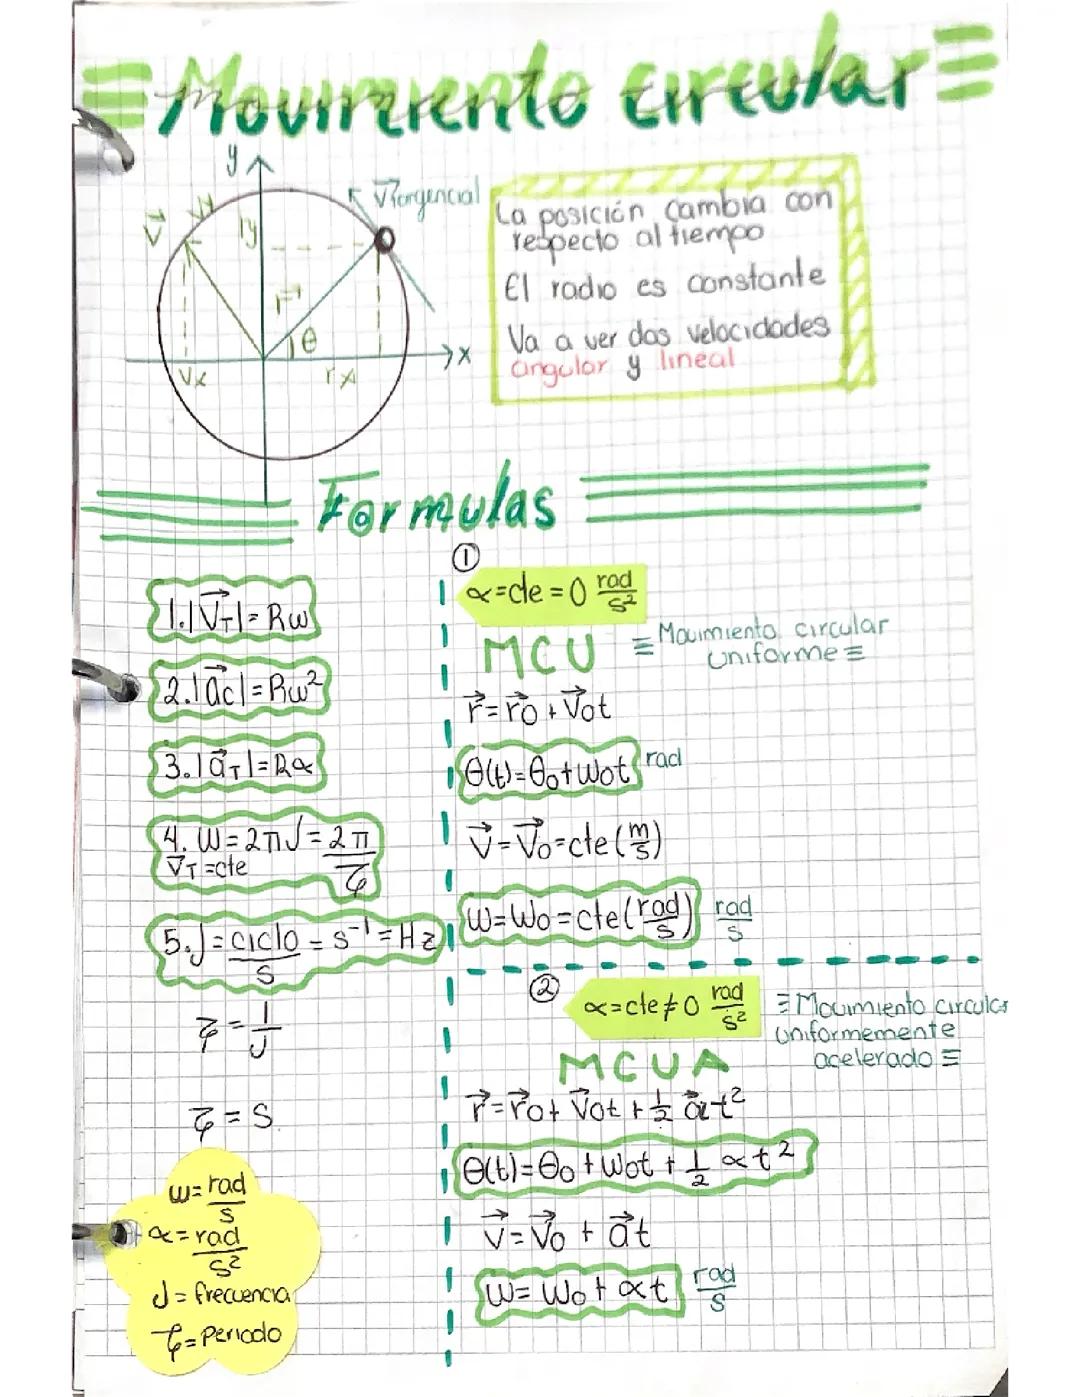 ≡Movimiento circular≡
y
V⃗Tangencial
V⃗
Vy
ry
r⃗
θ
x
Vx
rx
La posición cambia con
respecto al tiempo
El radio es constante
Va a ver dos velocidades
angular y lineal
Formulas
1.|V⃗T|=Rω
2.|a⃗c|=Rω²
3.|a⃗T|=Rα
4. ω=2πf=2π/τ
V⃗T=cte
5.f=ciclo/s=s⁻¹=Hz
τ=1/f
τ=s
ω=rad/s
α=rad/s²
f=frecuencia
τ=Periodo
①
α=cte=0 rad/s²
MCU ≡Movimiento circular
uniforme≡
r⃗=r⃗0+V⃗0t
θ(t)=θ0+ω0t rad
V⃗=V⃗0=cte(m/s)
ω=ω0=cte(rad/s) rad/s
②
α=cte≠0 rad/s² ≡Movimiento circular
uniformemente
acelerado≡
MCUA
r⃗=r⃗0+V⃗0t+1/2 a⃗t²
θ(t)=θ0+ω0t+1/2 αt²
V⃗=V⃗0+a⃗t
ω=ω0+αt rad/s